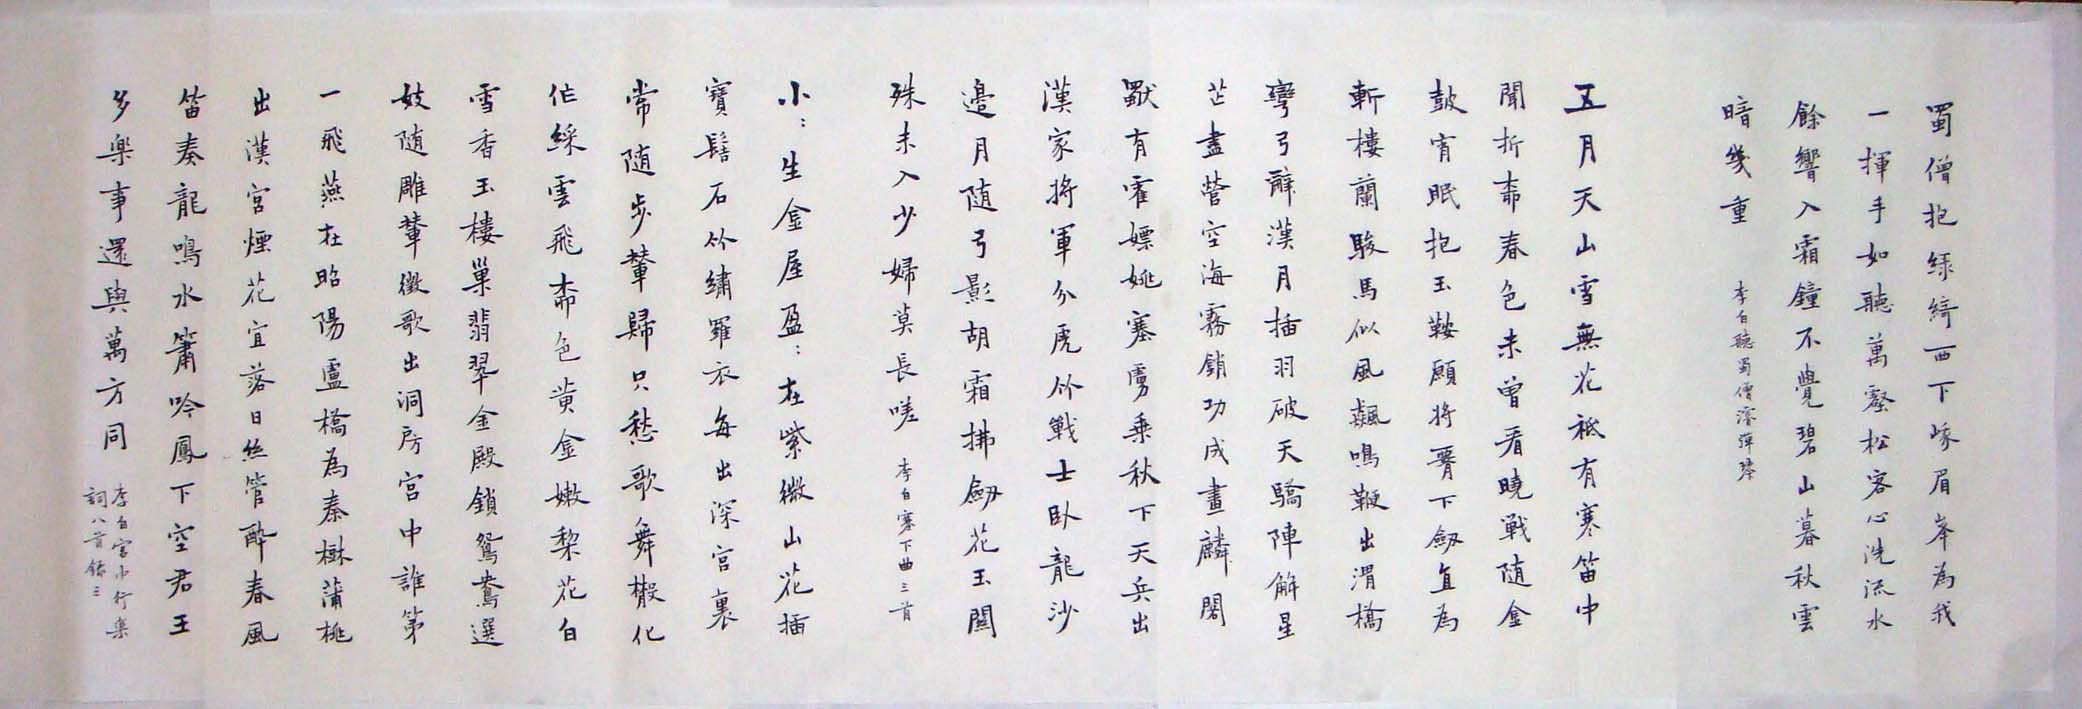 蜀僧抱緑綺西下峨眉峯為我
一揮手如聽萬壑松客心洗流水
餘響入霜鐘不覺碧山暮秋雲
暗幾重
李白聽蜀僧濬彈琴
五月天山雪無花祗有寒笛中
聞折桺春色未曾看曉戰随金
鼓宵眠抱玉鞍願将䙋下劔直為
斬樓蘭駿馬似風飈鳴鞭出渭橋
彎弓辭漢月插羽破天驕陣解星
芒盡營空海霧銷功成畫麟閣
獻有霍嫖姚塞虜乗秋下天兵出
漢家将軍分虎竹戰士臥龍沙
邉月随弓影胡霜拂劔花玉關
殊未入少婦莫長嗟
李白塞下曲三首
小〻生金屋盈〻在紫微山花插
寶髻石竹繡羅衣每出深宮裏
常随步輦歸只愁歌舞散化
作綵雲飛桺色黄金嫩棃花白
雪香玉樓巢翡翠金殿鎖鴛鴦選
妓随雕輦徵歌出洞房宮中誰第
一飛燕在昭陽盧橘為秦樹蒲桃
出漢宮煙花宜落日絲管醉春風
笛奏龍鳴水簫吟鳳下空君王
多樂事還與萬方同
李白宮中行樂
詞八首録三